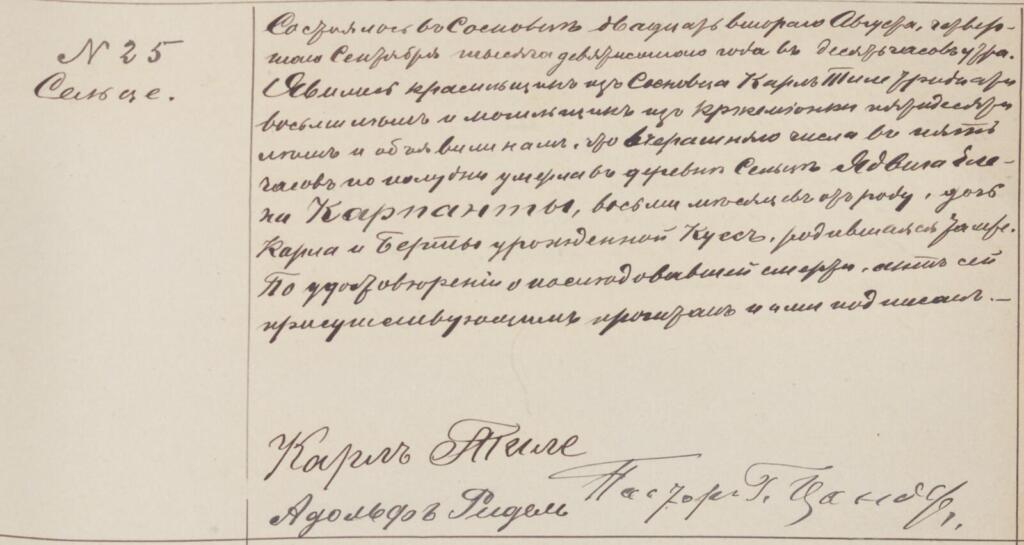 N 25
Сельце.
Состоялось въ Сосновицѣ двадцать втораго Августа, четвер-
таго Сентября тысяча девятисотаго года въ десять часовъ утра.
Явились красильщикъ изъ Сосновца Карлъ Тиле тридцати
восьми лѣтъ и могильщикъ изъ пятидесяти
лѣтъ и объявили намъ, что вчерашняго числа въ пять
часовъ по полудни умерла въ деревнѣ Сельцѣ Ядвига Еле-
на Карпанты, восьми мѣсяцевъ отъ роду, дочь
Карла и Берты урожденной Кусъ, родившаяся тамже.
По удостовѣреніи о послѣдовавшей смерти, актъ сей
присутствующимъ прочитанъ и ими подписанъ. —
Карлъ Тиле
Адольфъ Ридель
Пасторъ Г. Цандеръ.